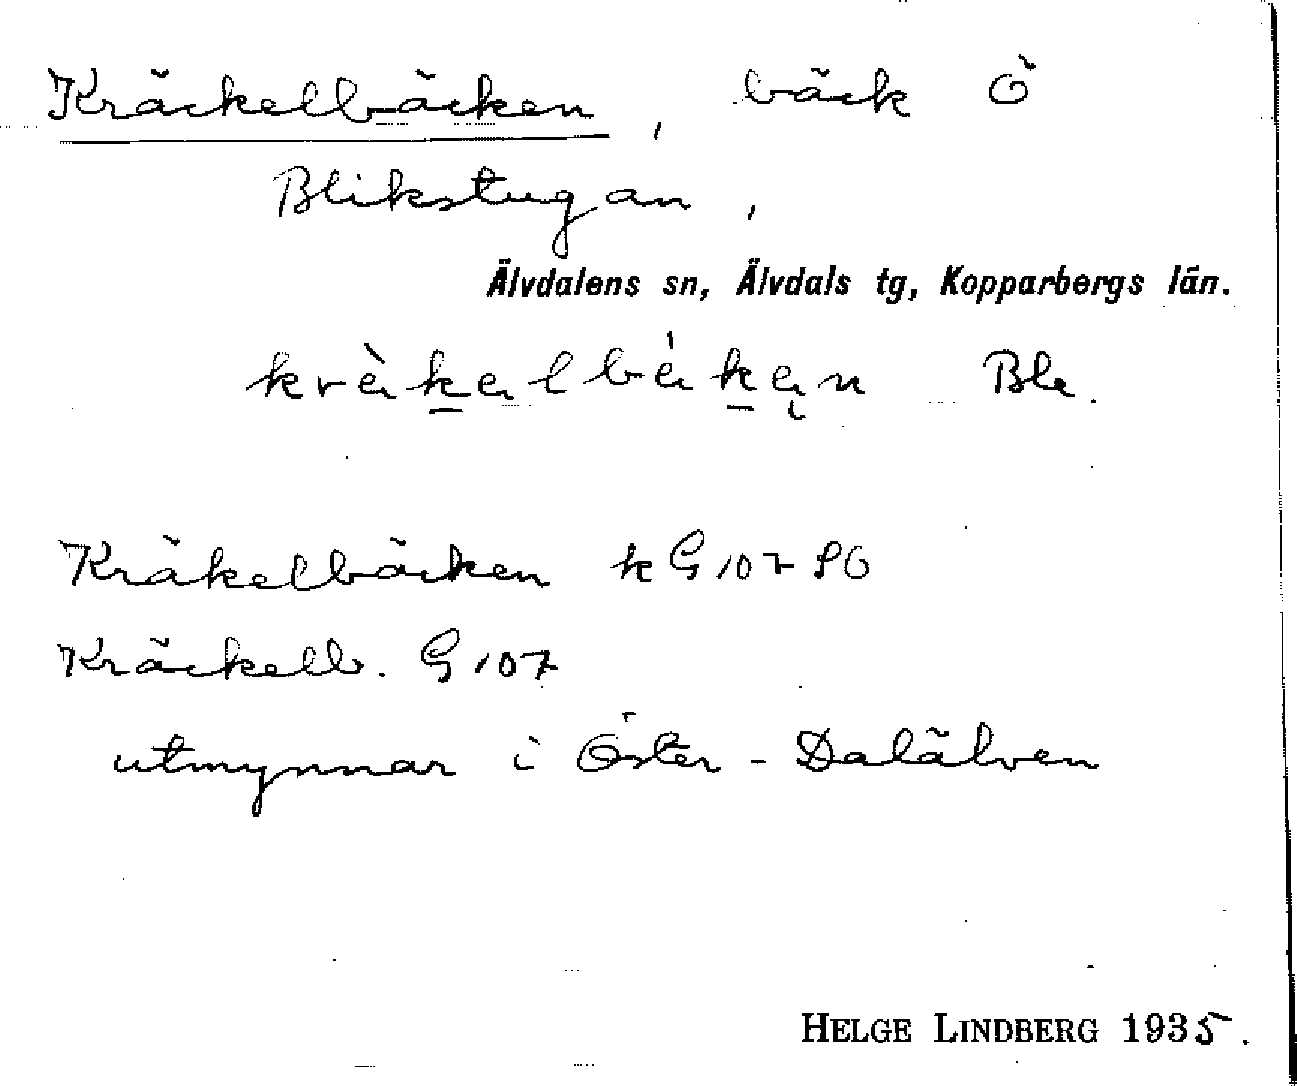 Kräckelbäcken, bäck Ö
Blikstugan,
Älvdalens sn, Älvdals tg, Kopparbergs län.
kràkalbákan Bla.
Kräkelbäcken kG 107 SO
Kräckelb. G 107
utmynnar i Öster-Dalälven
HELGE LINDBERG 1935.